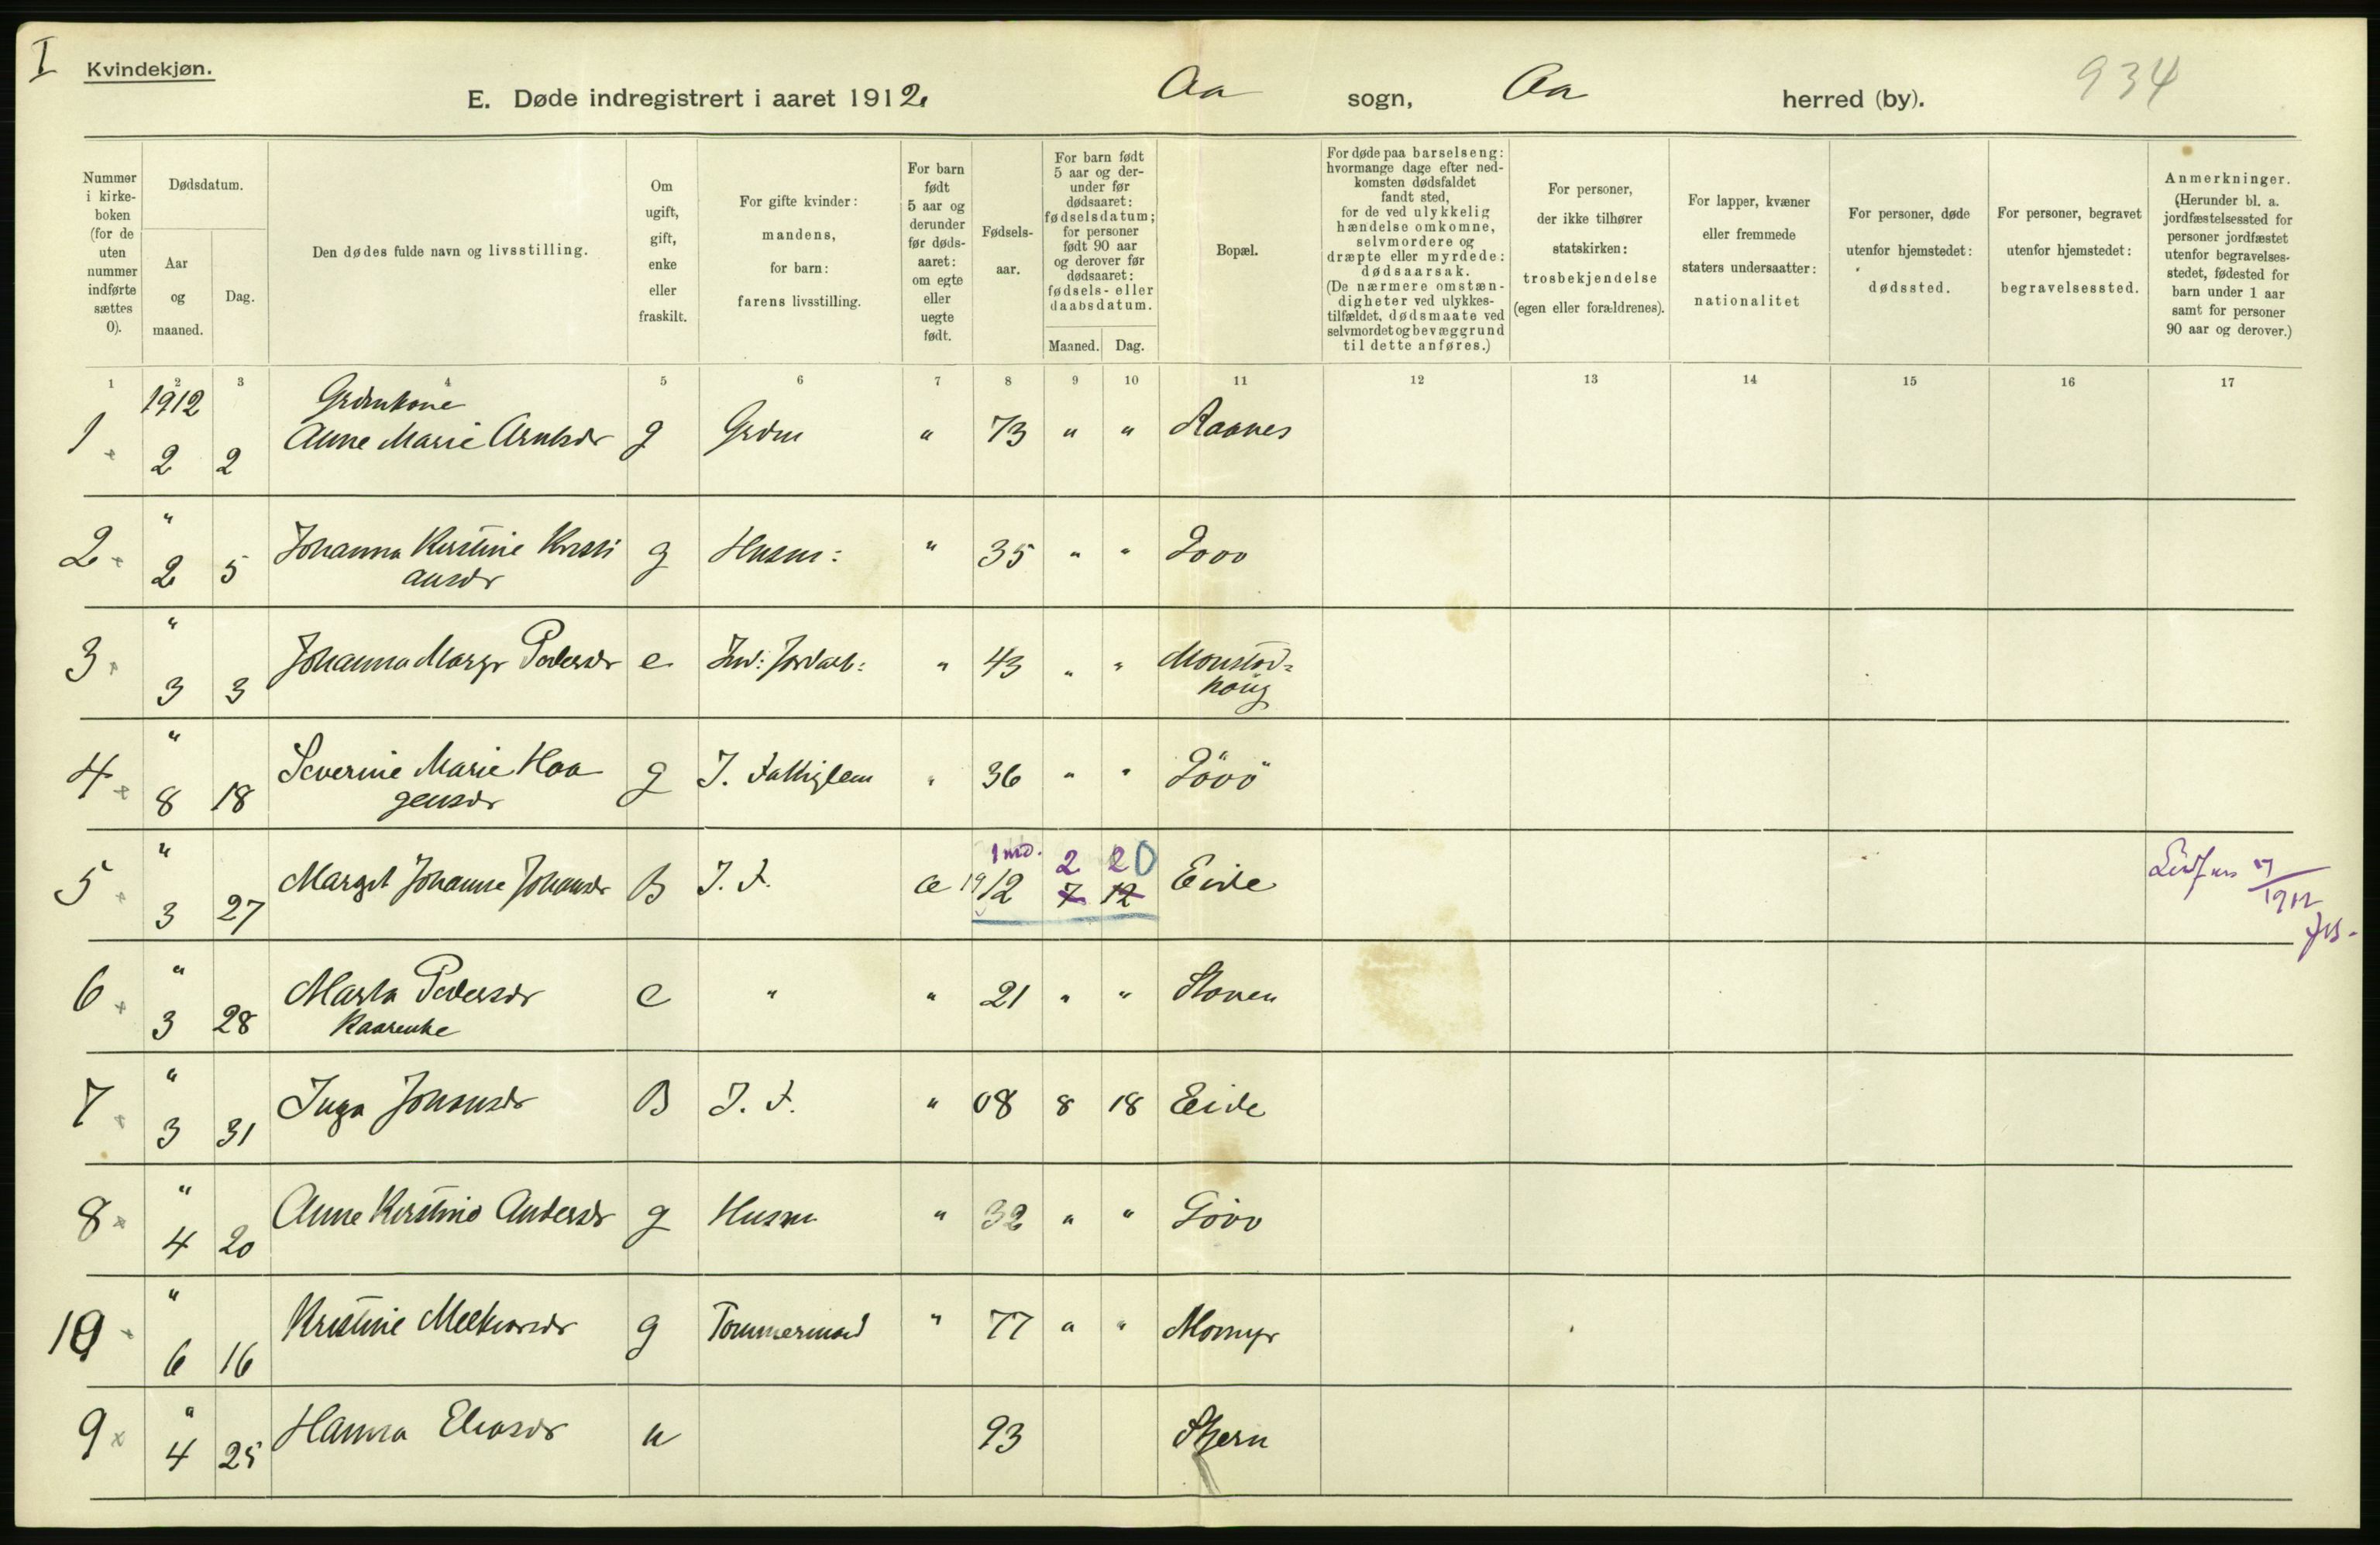 I
Kvindekjøn.
E. Døde indregistrert i aaret 1912. Aa sogn, Aa herred (by). 934
Nummer i kirke-boken (for de uten nummer indførte sættes 0).
Dødsdatum.
Aar og maaned.
Dag.
Den dødes fulde navn og livsstilling.
Om ugift, gift, enke eller fraskilt.
For gifte kvinder: mandens, for barn: farens livsstilling.
For barn født 5 aar og derunder før døds-aaret: om egte eller uegte født.
Fødsels-aar.
For barn født 5 aar og der-under før dødsaaret: fødselsdatum; for personer født 90 aar og derover før dødsaaret: fødsels- eller daabsdatum.
Maaned. Dag.
Bopæl.
For døde paa barselseng: hvormange dage efter ned-komsten dødsfaldet fandt sted, for de ved ulykkelig hændelse omkomne, selvmordere og dræpte eller myrdede: dødsaarsak. (De nærmere omstæn-digheter ved ulykkes-tilfældet, dødsmaate ved selvmordet og bevæggrund til dette anføres.)
For personer, der ikke tilhører statskirken: trosbekjendelse (egen eller forældrenes).
For lapper, kvæner eller fremmede staters undersaatter: nationalitet
For personer, døde utenfor hjemstedet: dødssted.
For personer, begravet utenfor hjemstedet: begravelsessted.
Anmerkninger. (Herunder bl. a. jordfæstelsessted for personer jordfæstet utenfor begravelses-stedet, fødested for barn under 1 aar samt for personer 90 aar og derover.)
1 2 3 4 5 6 7 8 9 10 11 12 13 14 15 16 17
1912 Grdmkone
1 2 2 Anne Marie Arntsdr g Grdm " 73 " " Raanes
"
2 2 5 Johanna Kirstine Kristi g Husm: " 35 " "
ansdr
"
3 3 3 Johanna Margr Pedersdr e Ind: Jordarb: " 43 " " Monstad=
haug
"
4 8 18 Severine Marie Haa g J. Fattiglem " 36 " "
gensdr
" 1 md. 2 20
5 3 27 Margit Johanne Johansdr B J. F. 1912 7 12 Eide
1912
"
6 3 28 Marta Pedersdr e " " 21 " "
Kaarenke
"
7 3 31 Inga Johansdr B J. F. " 08 8 18 Eide
"
8 4 20 Anne Kirstine Andersdr g Husm " 32 " "
"
10 6 16 Kristine Melkiorsdr g Tømmermand " 77 " " Momyr
"
9 4 25 Hanna Eliasdr u 93 Skjern